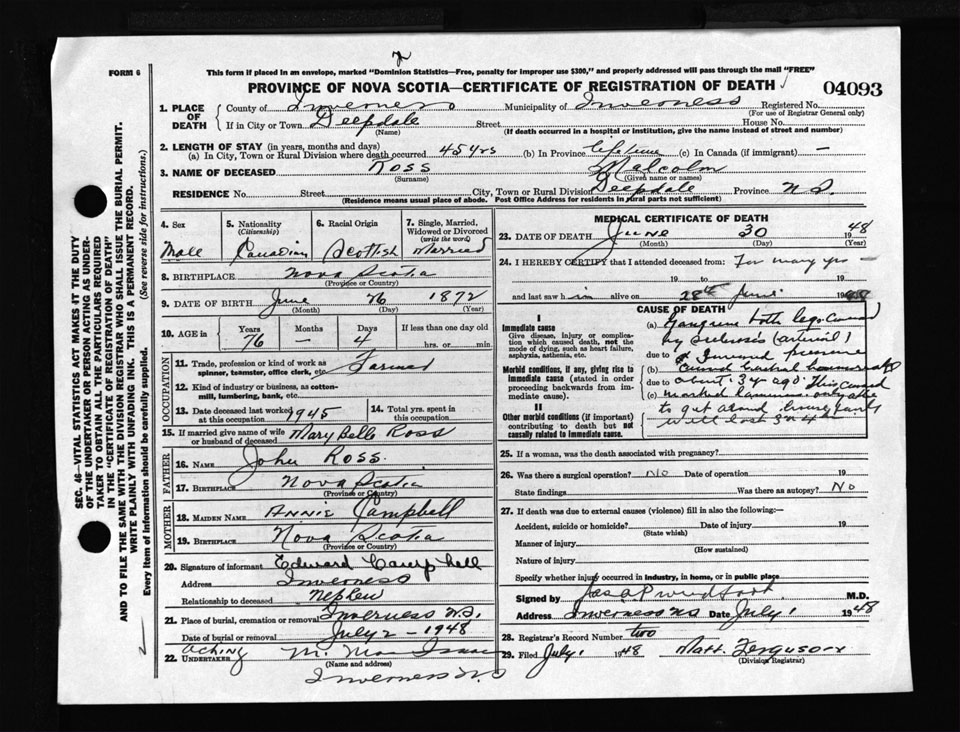 FORM 6
This form if placed in an envelope, marked "Dominion Statistics—Free, penalty for improper use $300," and properly addressed will pass through the mail "FREE"
PROVINCE OF NOVA SCOTIA—CERTIFICATE OF REGISTRATION OF DEATH
04093
SEC. 46—VITAL STATISTICS ACT MAKES IT THE DUTY
OF THE UNDERTAKER OR PERSON ACTING AS UNDER-
TAKER TO OBTAIN ALL THE PARTICULARS REQUIRED
IN THE "CERTIFICATE OF REGISTRATION OF DEATH"
AND TO FILE THE SAME WITH THE DIVISION REGISTRAR WHO SHALL ISSUE THE BURIAL PERMIT.
WRITE PLAINLY WITH UNFADING INK. THIS IS A PERMANENT RECORD.
Every item of information should be carefully supplied. (See reverse side for instructions.)
1. PLACE OF DEATH
County of Inverness Municipality of Inverness Registered No.
(For use of Registrar General only)
If in City or Town Deepdale Street House No.
(Name) (If death occurred in a hospital or institution, give the name instead of street and number)
2. LENGTH OF STAY (in years, months and days)
(a) In City, Town or Rural Division where death occurred 45 yrs (b) In Province lifetime (c) In Canada (if immigrant) —
3. NAME OF DECEASED Ross Malcolm
(Surname) (Given name or names)
RESIDENCE No. Street City, Town or Rural Division Deepdale Province N.S.
(Residence means usual place of abode. Post Office Address for residents in rural parts not sufficient)
4. Sex Male
5. Nationality (Citizenship) Canadian
6. Racial Origin Scottish
7. Single, Married, Widowed or Divorced (write the word) Married
8. BIRTHPLACE Nova Scotia
(Province or Country)
9. DATE OF BIRTH June 26 1872
(Month) (Day) (Year)
10. AGE in Years 76 Months — Days 4 If less than one day old hrs. or min.
OCCUPATION
11. Trade, profession or kind of work as spinner, teamster, office clerk, etc. Farmer
12. Kind of industry or business, as cotton-mill, lumbering, bank, etc.
13. Date deceased last worked at this occupation 1945
14. Total yrs. spent in this occupation
15. If married give name of wife or husband of deceased Mary Belle Ross
FATHER
16. NAME John Ross.
17. BIRTHPLACE Nova Scotia
(Province or Country)
MOTHER
18. MAIDEN NAME Annie Campbell
19. BIRTHPLACE Nova Scotia
(Province or Country)
20. Signature of informant Edward Campbell
Address Inverness
Relationship to deceased nephew
21. Place of burial, cremation or removal Inverness N.S.
Date of burial or removal July 2 - 1948
22. Acting UNDERTAKER M. Mac Isaac
(Name and address)
Inverness N.S
MEDICAL CERTIFICATE OF DEATH
23. DATE OF DEATH June 30 1948
(Month) (Day) (Year)
24. I HEREBY CERTIFY that I attended deceased from: For many yrs —
19 to 19
and last saw him alive on 28th June 1948
CAUSE OF DEATH
I
Immediate cause
Give disease, injury or complication which caused death, not the mode of dying, such as heart failure, asphyxia, asthenia, etc.
Morbid conditions, if any, giving rise to immediate cause (stated in order proceeding backwards from immediate cause).
II
Other morbid conditions (if important) contributing to death but not causally related to immediate cause.
(a) Gangrene both legs caused
by
due to
(b)
due to about ago. This caused
(c) only able
to get around
25. If a woman, was the death associated with pregnancy?
26. Was there a surgical operation? No Date of operation 19
State findings Was there an autopsy? No
27. If death was due to external causes (violence) fill in also the following:—
Accident, suicide or homicide? Date of injury 19
(State which)
Manner of injury
(How sustained)
Nature of injury
Specify whether injury occurred in industry, in home, or in public place
Signed by M.D.
Address Inverness N.S Date July 1 1948
28. Registrar's Record Number two
29. Filed July 1 1948 Matt. Ferguson
(Division Registrar)